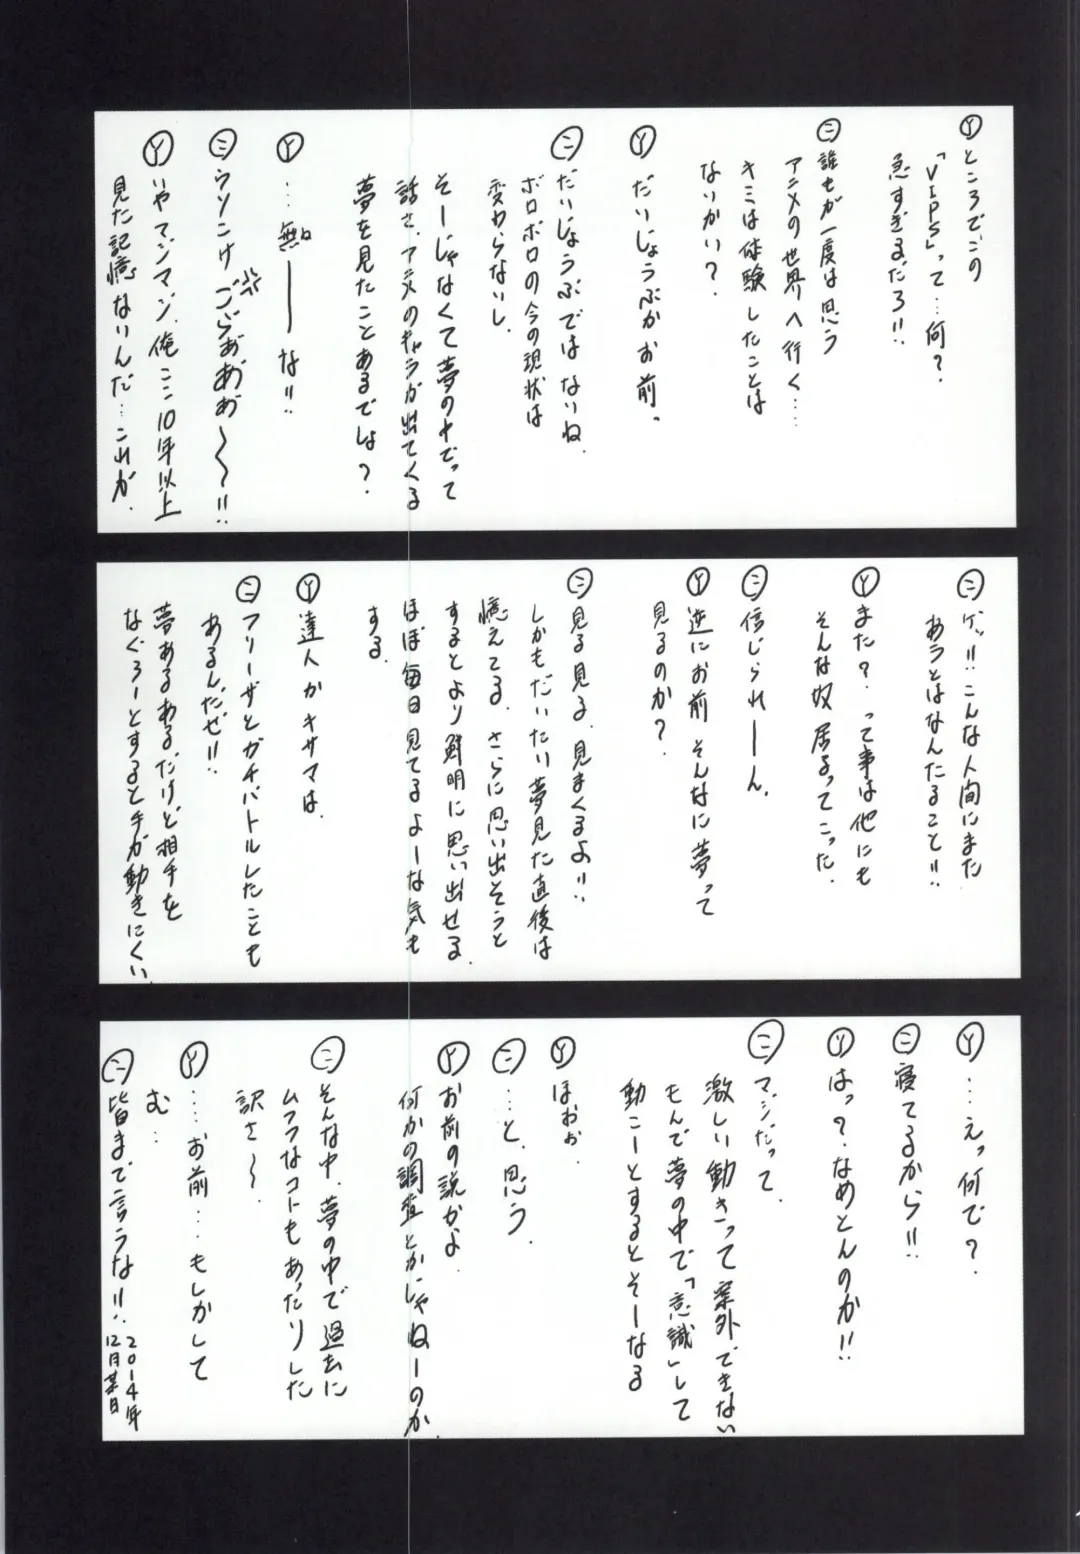 Ⓨところでこの
「VIPS」って…何？
急すぎるだろ!!
㊁誰もが一度は思う
アニメの世界へ行く……
キミは体験したことは
ないかい？
Ⓨだいじょうぶかお前っ
㊁だいじょうぶではないね
ボロボロの今の現状は
変わらないし、
そーじゃなくて夢の中でって
話さ、アニメのキャラが出てくる
夢を見たことあるでしょ？
Ⓨ…無ーーな!!
㊁ウソこけごらぁあぁ〜〜!!
Ⓨいやマジマジ、俺ここ10年以上
見た記憶ないんだ…これが、
㊁ゲッ!!こんな人間にまた
あうとはなんたること!!
Ⓨまた？って事は他にも
そんな奴居るってこった、
㊁信じられーーん、
Ⓨ逆にお前そんなに夢って
見るのか？
㊁見る見る、見まくるよ!!
しかもだいたい夢見た直後は
憶えてる、さらに思い出そうと
するとより鮮明に思い出せる、
ほぼ毎日見てるよーな気も
する、
Ⓨ達人かキサマは、
㊁フリーザとガチバトルしたことも
あるんだぜ!!
夢あるあるだけど相手を
なぐろーとすると手が動きにくい、
Ⓨ…えっ何で？
㊁寝てるから!!
Ⓨはっ？なめとんのか!!
㊁マジだって、
激しい動きって案外できない
もんで夢の中で「意識」して
動こーとするとそーなる
Ⓨほぉぉ
㊁…と、思う、
Ⓨお前の説かよ、
何かの調査とかじゃねーのか、
㊁そんな中、夢の中で過去に
ムフフなコトもあったりした
訳さ〜、
Ⓨ……お前…もしかして
む…
㊁皆まで言うな!!
2014年
12月某日